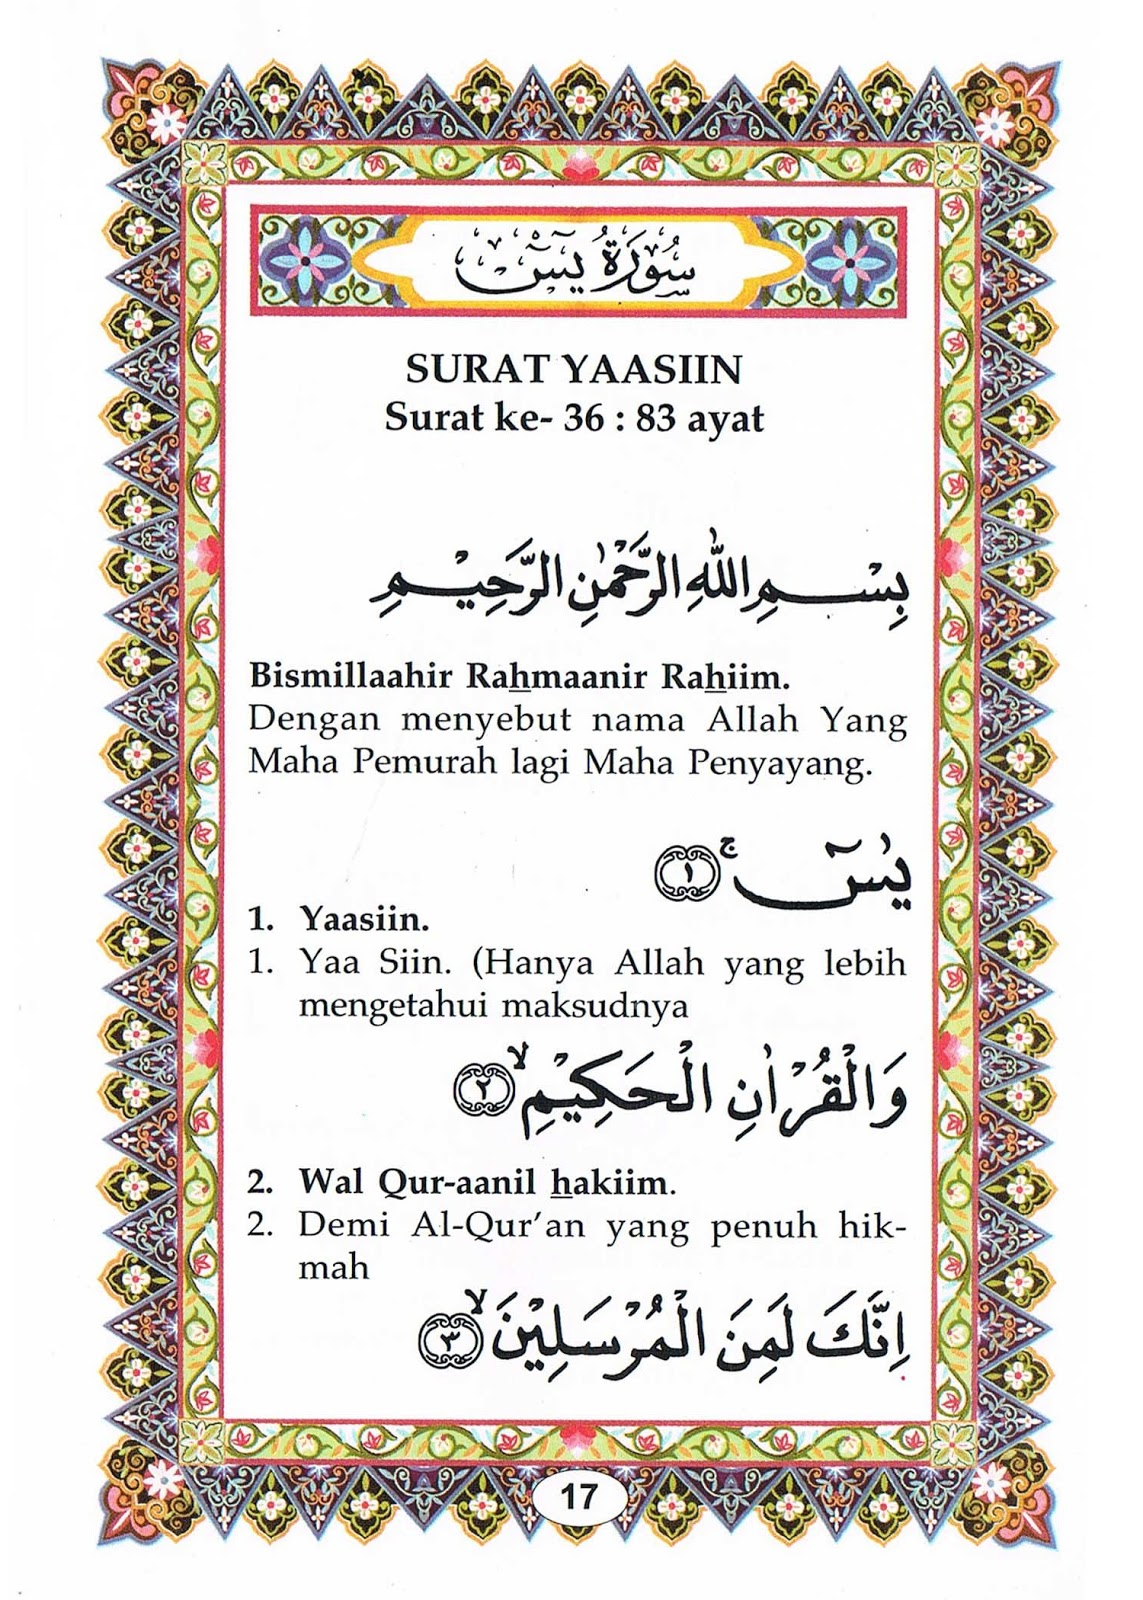 سُورَةُ يٰسٓ
SURAT YAASIIN
Surat ke- 36 : 83 ayat
بِسْمِ اللّٰهِ الرَّحْمٰنِ الرَّحِيْمِ
Bismillaahir Rahmaanir Rahiim.
Dengan menyebut nama Allah Yang
Maha Pemurah lagi Maha Penyayang.
يٰسٓ ۚ ﴿١﴾
1. Yaasiin.
1. Yaa Siin. (Hanya Allah yang lebih
mengetahui maksudnya
وَالْقُرْاٰنِ الْحَكِيْمِ ۙ ﴿٢﴾
2. Wal Qur-aanil hakiim.
2. Demi Al-Qur’an yang penuh hik-
mah
اِنَّكَ لَمِنَ الْمُرْسَلِيْنَ ۙ ﴿٣﴾
17